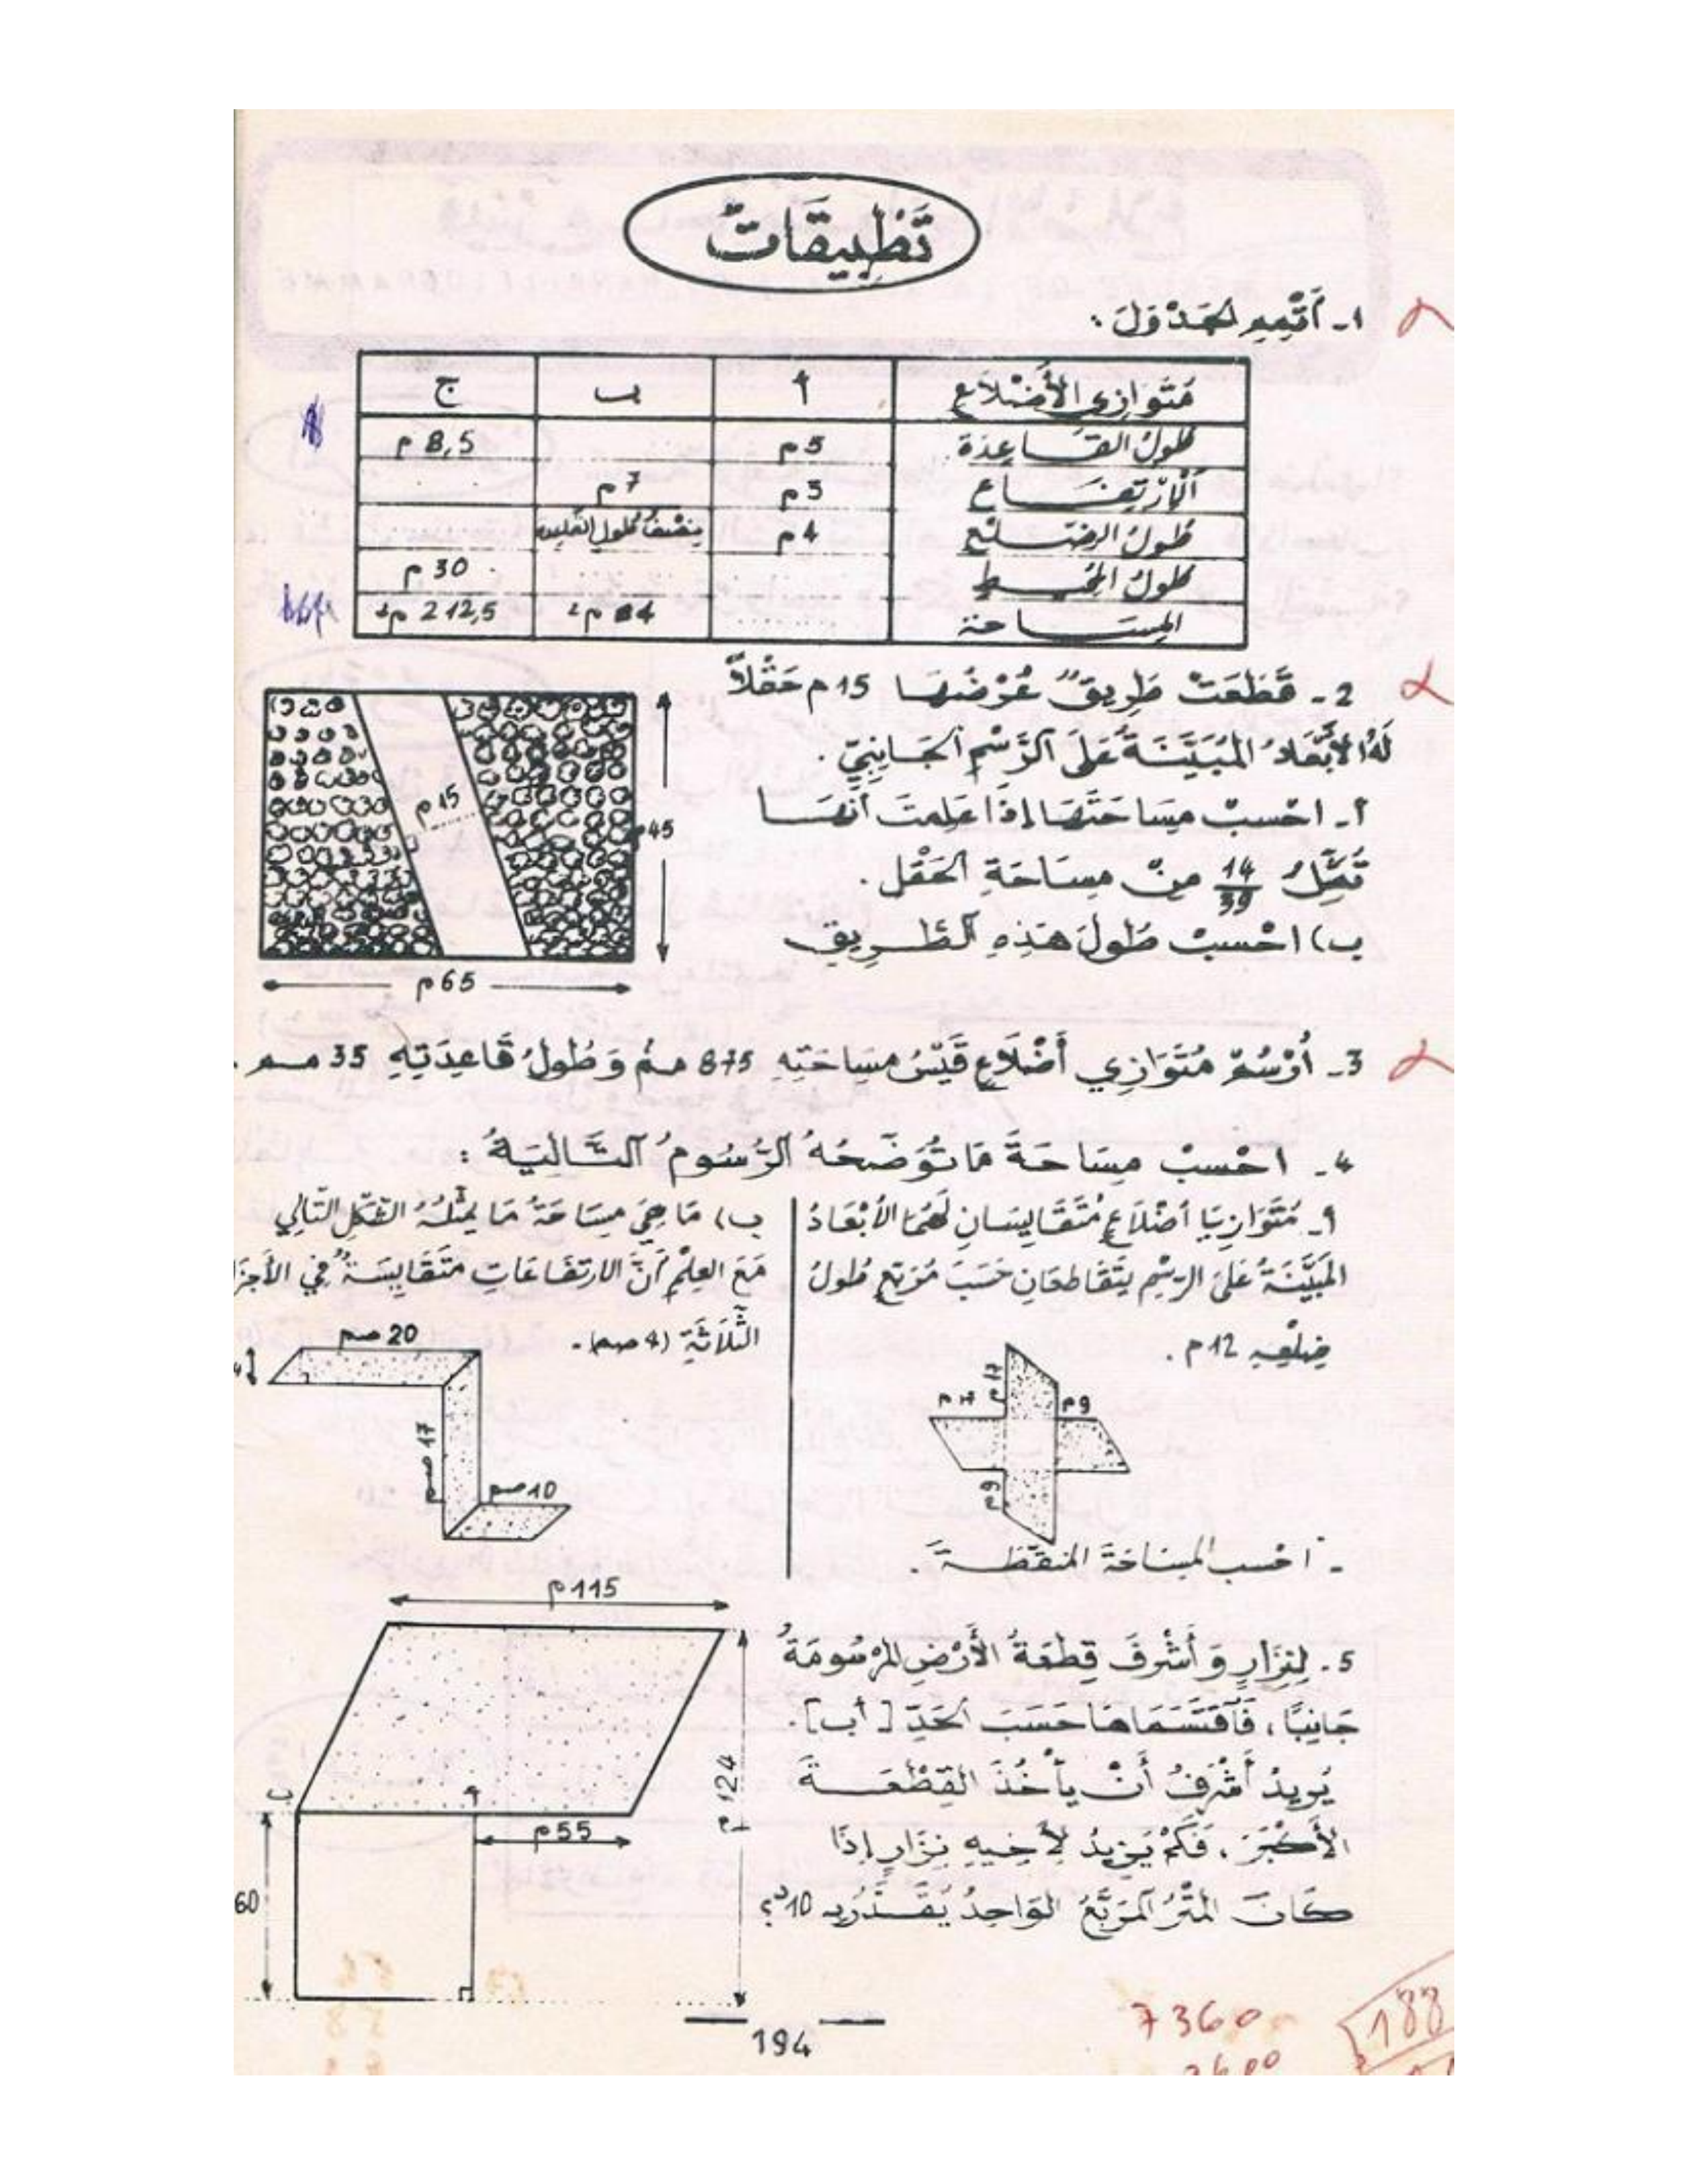 تَطْبِيقَاتٌ
1- أُتَمِّمُ الجَدْوَلَ :
مُتَوَازِي الأَضْلَاعِ أ ب ج
طُولُ القَاعِدَة 5م 8,5 م
الإرْتِفَاع 3م 7م
طُولُ الضِّلْع 4م نِصْفُ طُولِ القاعدة
طُولُ المُحِيط 30 م
المِسَاحَة 84 م² 212,5 م²
2- قَطَعَتْ طَرِيقٌ عَرْضُهَا 15م حَقْلاً
لَهُ الأَبْعَادُ المُبَيَّنَةُ عَلَى الرَّسْمِ الجَانِبِيِّ .
أ- احْسبْ مِسَاحَتَهَا إِذَا عَلِمتَ أَنَّهَا
تُمَثِّلُ 14/39 مِنْ مِسَاحَةِ الحَقْل .
ب) احْسبْ طُولَ هَذِهِ الطَّرِيق
15م
45م
65م
3- أُرْسُمْ مُتَوَازِي أَضْلَاعٍ قَيْسُ مِسَاحَتِهِ 875 مم² وَطُولُ قَاعِدَتِهِ 35 مم .
4- احْسبْ مِسَاحَةَ مَا تُوَضِّحُهُ الرُّسُومُ التَّالِيَةُ :
أ- مُتَوَازِيَا أَضْلَاعٍ مُتَقَايِسَانِ لَهُمَا الأَبْعَادُ
المُبَيَّنَةُ عَلَى الرَّسْمِ يَتَقَاطعَانِ حَسَبَ مُرَبَّعٍ طُولُ
ضِلْعِهِ 12م .
17م
9م
9م
- احْسب المِسَاحَةَ المُنَقَّطَةَ .
ب) مَا هِيَ مِسَاحَةُ مَا يُمَثِّلُهُ الشَّكْلُ التَّالِي
مَعَ العِلْمِ أَنَّ الارتفَاعَاتِ مُتَقَايِسَةٌ فِي الأَجْزَا
الثَّلَاثَةِ (4 صم).
20صم
4
17صم
10صم
5- لِنِزَارٍ وَأَشْرَفَ قِطْعَةُ الأَرْضِ المَرْسُومَةُ
جَانِبيًّا، فَاقْتَسَمَاهَا حَسَبَ الحَدِّ [أب].
يُرِيدُ أَشْرَفُ أَنْ يَأْخُذَ القِطْعَةَ
الأَكْبَرَ، فَكَمْ يَزِيدُ لِأَخِيهِ نِزَارٍ إِذَا
كَانَ المِتْرُ المُرَبَّعُ الوَاحِدُ يُقَدَّرُ بِـ 10د؟
115م
124م
ب
أ
55م
60
194
7360
188